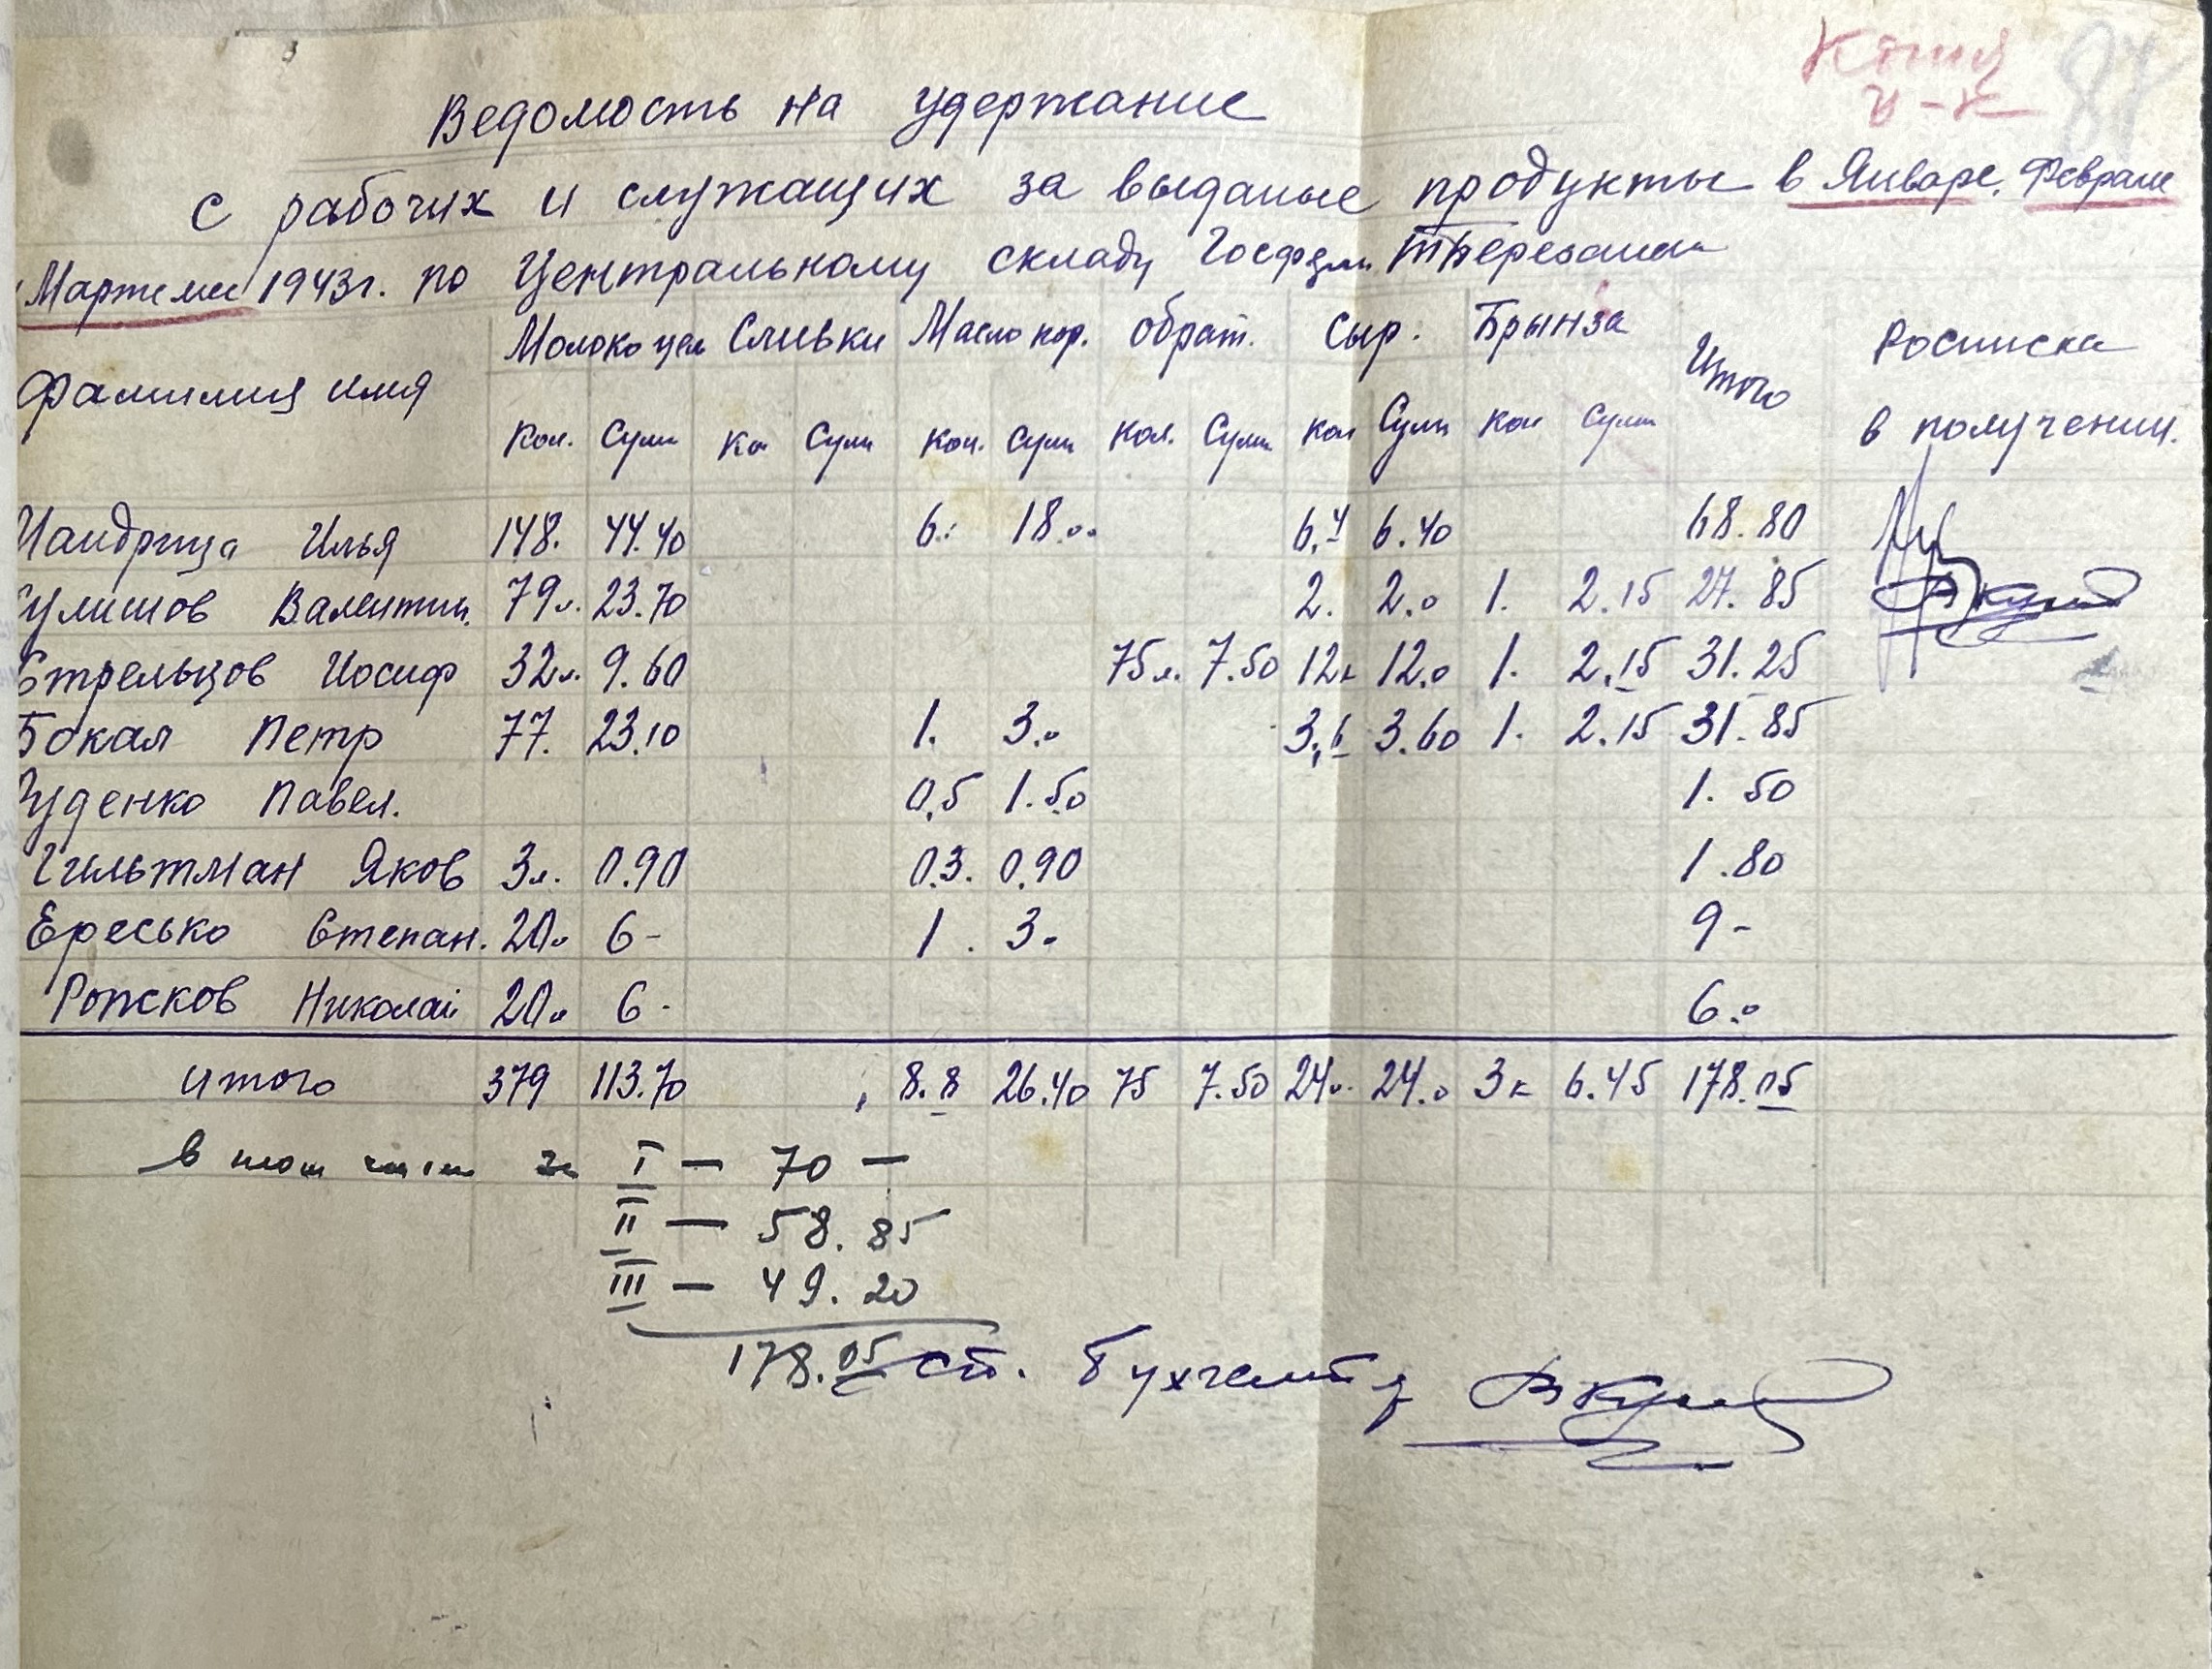 Копия
87
Ведомость на удержание
с рабочих и служащих за выданые продукты в Январе, Феврале
Март мес 1943г. по Центральному складу Госферм
Фамилия имя Молоко цел Сливки Масло кор. Обрат. Сыр. Брынза Итого Росписка в получении.
Кол. Сумм Ко Сумм Кол. Сумм Кол. Сумм Кол Сумм Кол Сумм
Илья 148. 44.40 6. 18.00 6,4 6.40 68.80
Валентин. 79л. 23.70 2. 2.0 1. 2.15 27.85
Стрельцов Иосиф 32л. 9.60 75л. 7.50 12к 12.0 1. 2.15 31.25
Бокал Петр 77. 23.10 1. 3.0 3,6 3.60 1. 2.15 31.85
Павел. 0,5 1.50 1.50
Гильтман Яков 3л. 0.90 0.3. 0.90 1.80
Ересько Степан. 20л 6- 1. 3.0 9-
Рожсков Николай 20л 6- 6.0
итого 379 113.70 8.8 26.40 75 7.50 24к. 24.0 3к 6.45 178.05
в том числе за I — 70 —
II — 58.85
III — 49.20
178.05 ст. бухгалтер